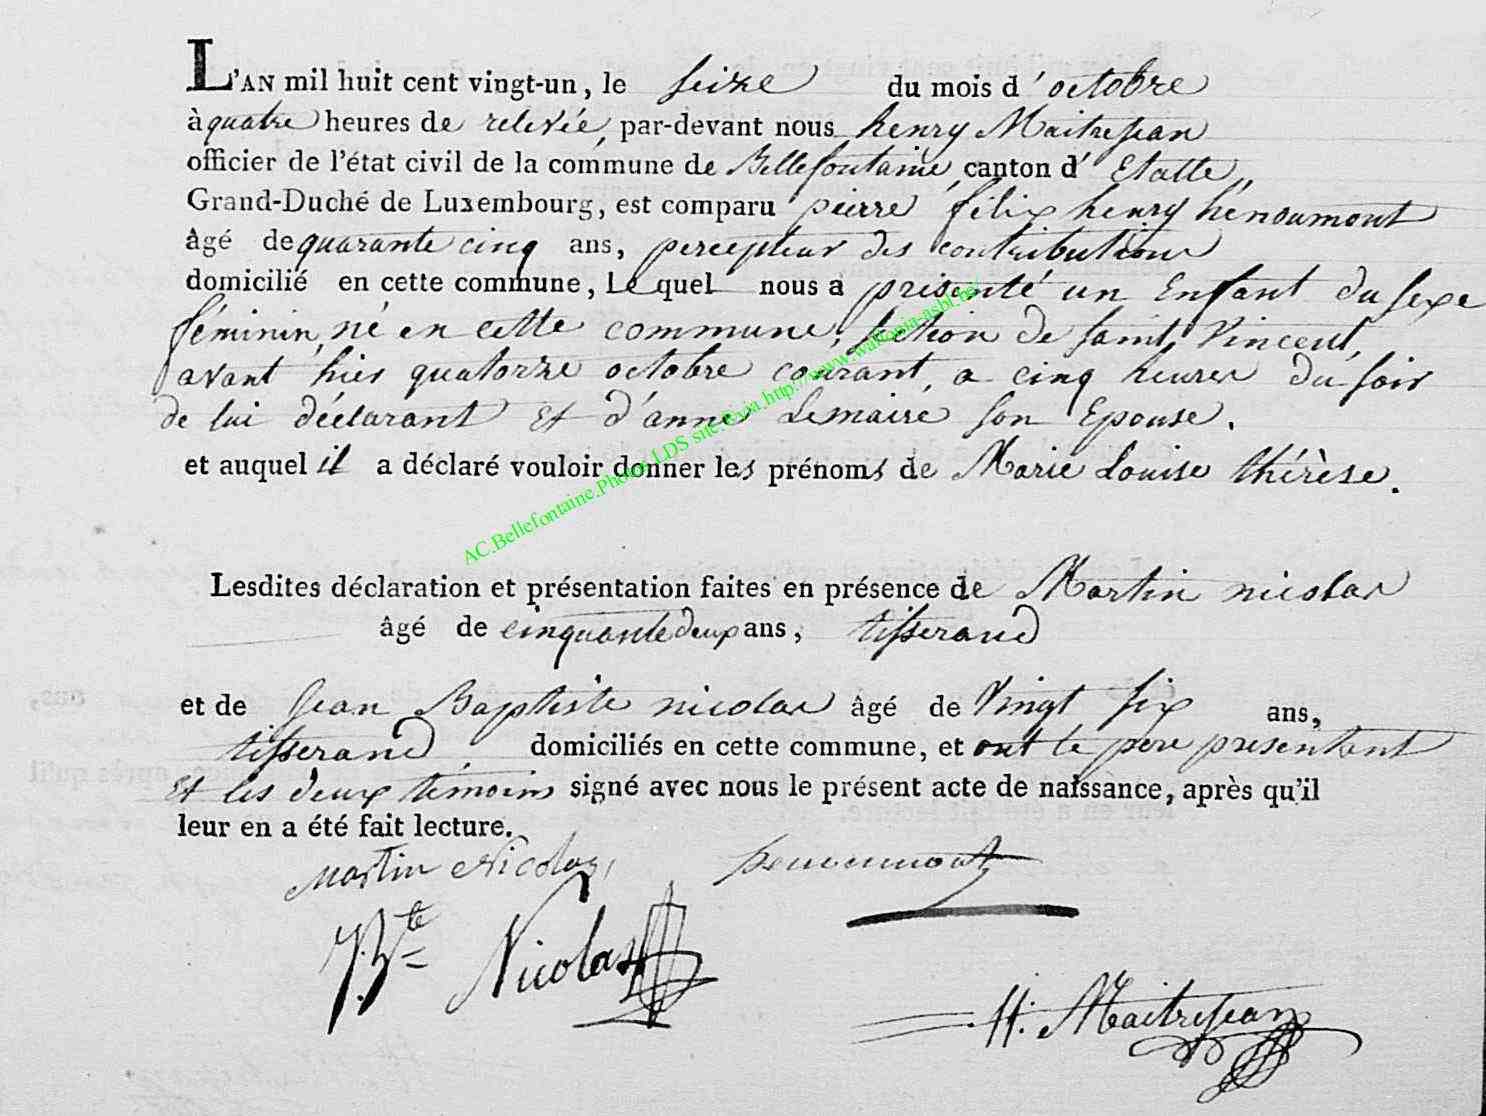 L'AN mil huit cent vingt-un, le seize du mois d'octobre
à quatre heures de relevée, par-devant nous henry Maitrejean
officier de l'état civil de la commune de Bellefontaine, canton d'Etalle,
Grand-Duché de Luxembourg, est comparu pierre félix henry henoumont
âgé de quarante cinq ans, percepteur des contributions
domicilié en cette commune, Lequel nous a présenté un Enfant du sexe
féminin, né en cette commune, section de saint Vincent,
avant hier quatorze octobre courant, a cinq heures du soir
de lui déclarant Et d'anne Lemaire son Epouse.
et auquel il a déclaré vouloir donner les prénoms de Marie Louise thérèse.
AC.Bellefontaine.Photos LDS site.fs via http://www.wallonia-asbl.be/
Lesdites déclaration et présentation faites en présence de Martin nicolas
âgé de cinquante deux ans, tisserand
et de Jean Baptiste nicolas âgé de Vingt six ans,
tisserand domiciliés en cette commune, et ont le pere presentant
Et les deux temoins signé avec nous le présent acte de naissance, après qu'il
leur en a été fait lecture.
Martin Nicolas, henoumont
J. Bte Nicolas
H. Maitrejean